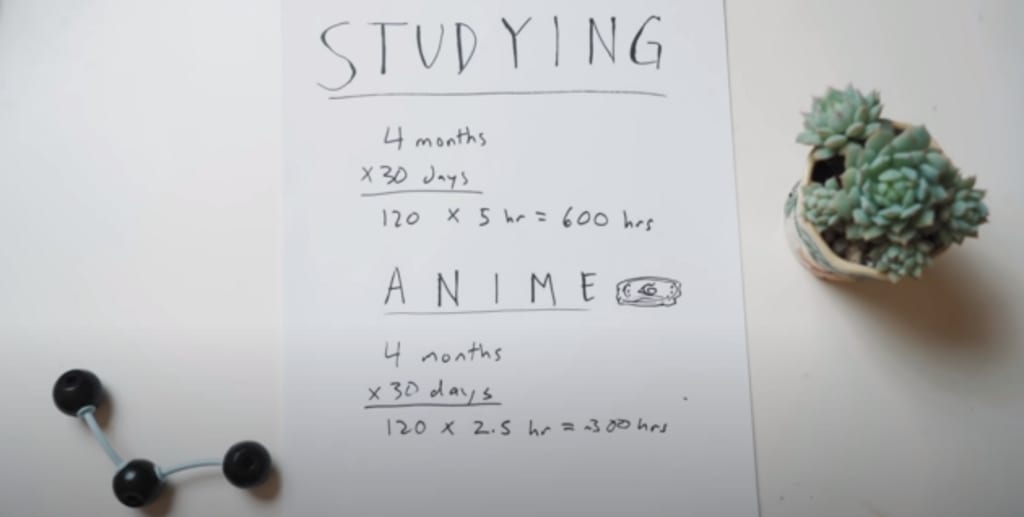 STUDYING
4 months
x 30 days
120 x 5 hr = 600 hrs
ANIME
4 months
x 30 days
120 x 2.5 hr = ~300 hrs